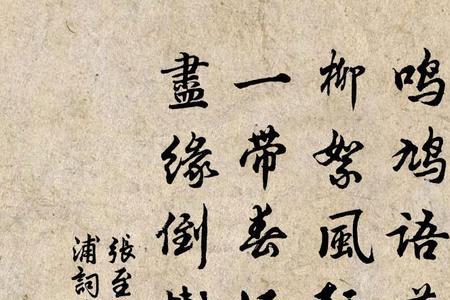 鸣鸠语
柳絮風
一带春
盡缘倒
張至
浦詞